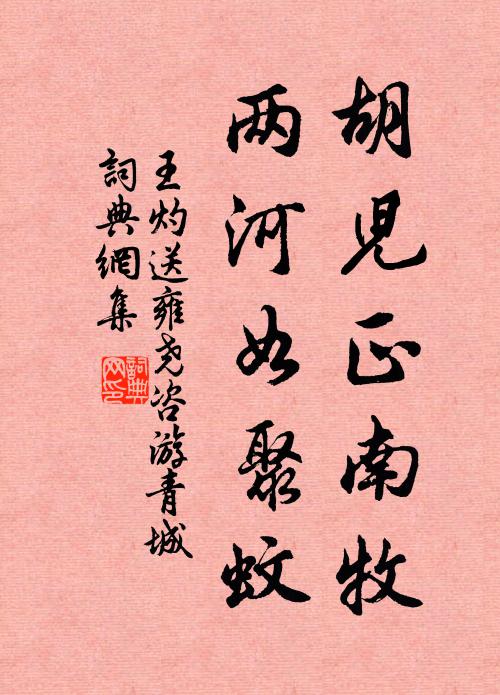 胡児正南牧
两河如聚蚊
王灼送雍尧咨游青城
詞典網集
詞典网印